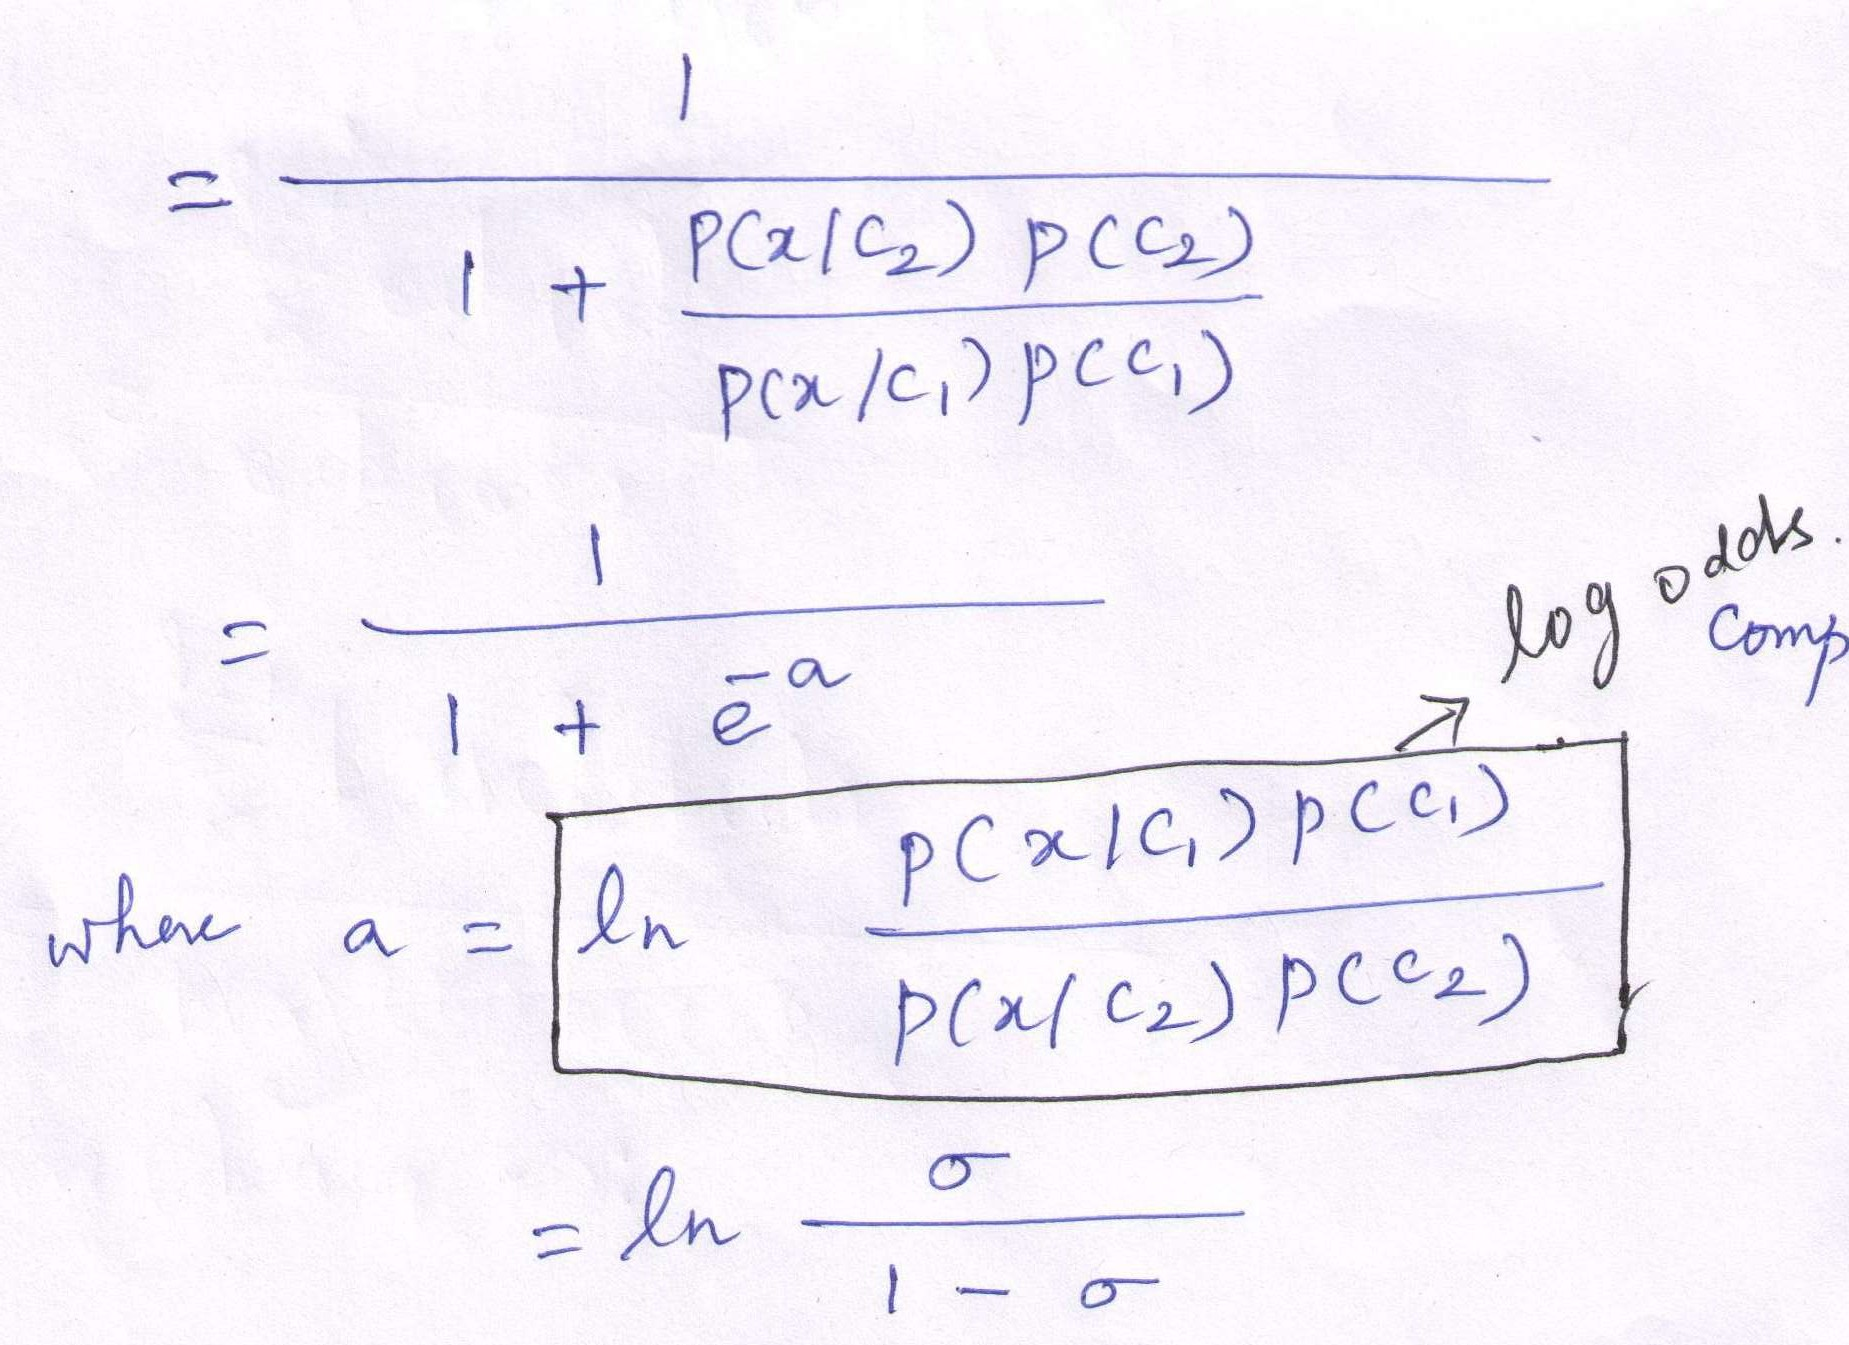 1
=
1 + P(x/C2) P(C2)
P(x/C1) P(C1)
1
=
1 + e^-a
log odds.
Comp
where a = ln P(x/C1) P(C1)
P(x/C2) P(C2)
= ln σ
1 - σ